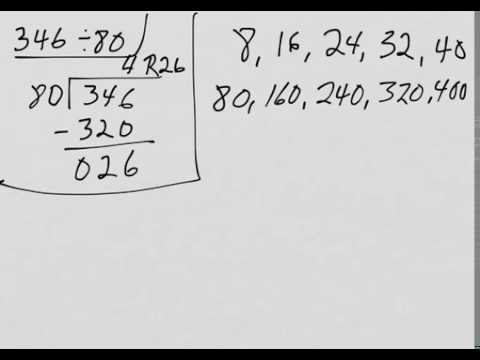 346 ÷ 80
4 R26
80 346
- 320
026
8, 16, 24, 32, 40
80, 160, 240, 320, 400